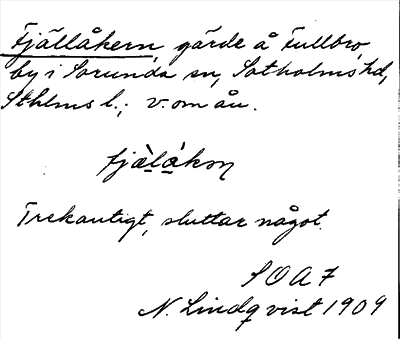 Fjällåkern, gärde å Fullbro,
by i Sorunda sn, Sotholms hd,
Sthlms l.; v. om ån.
fjä̀lákəṇ
Trekantigt, sluttar något.
SOA 7
N. Lindqvist 1909